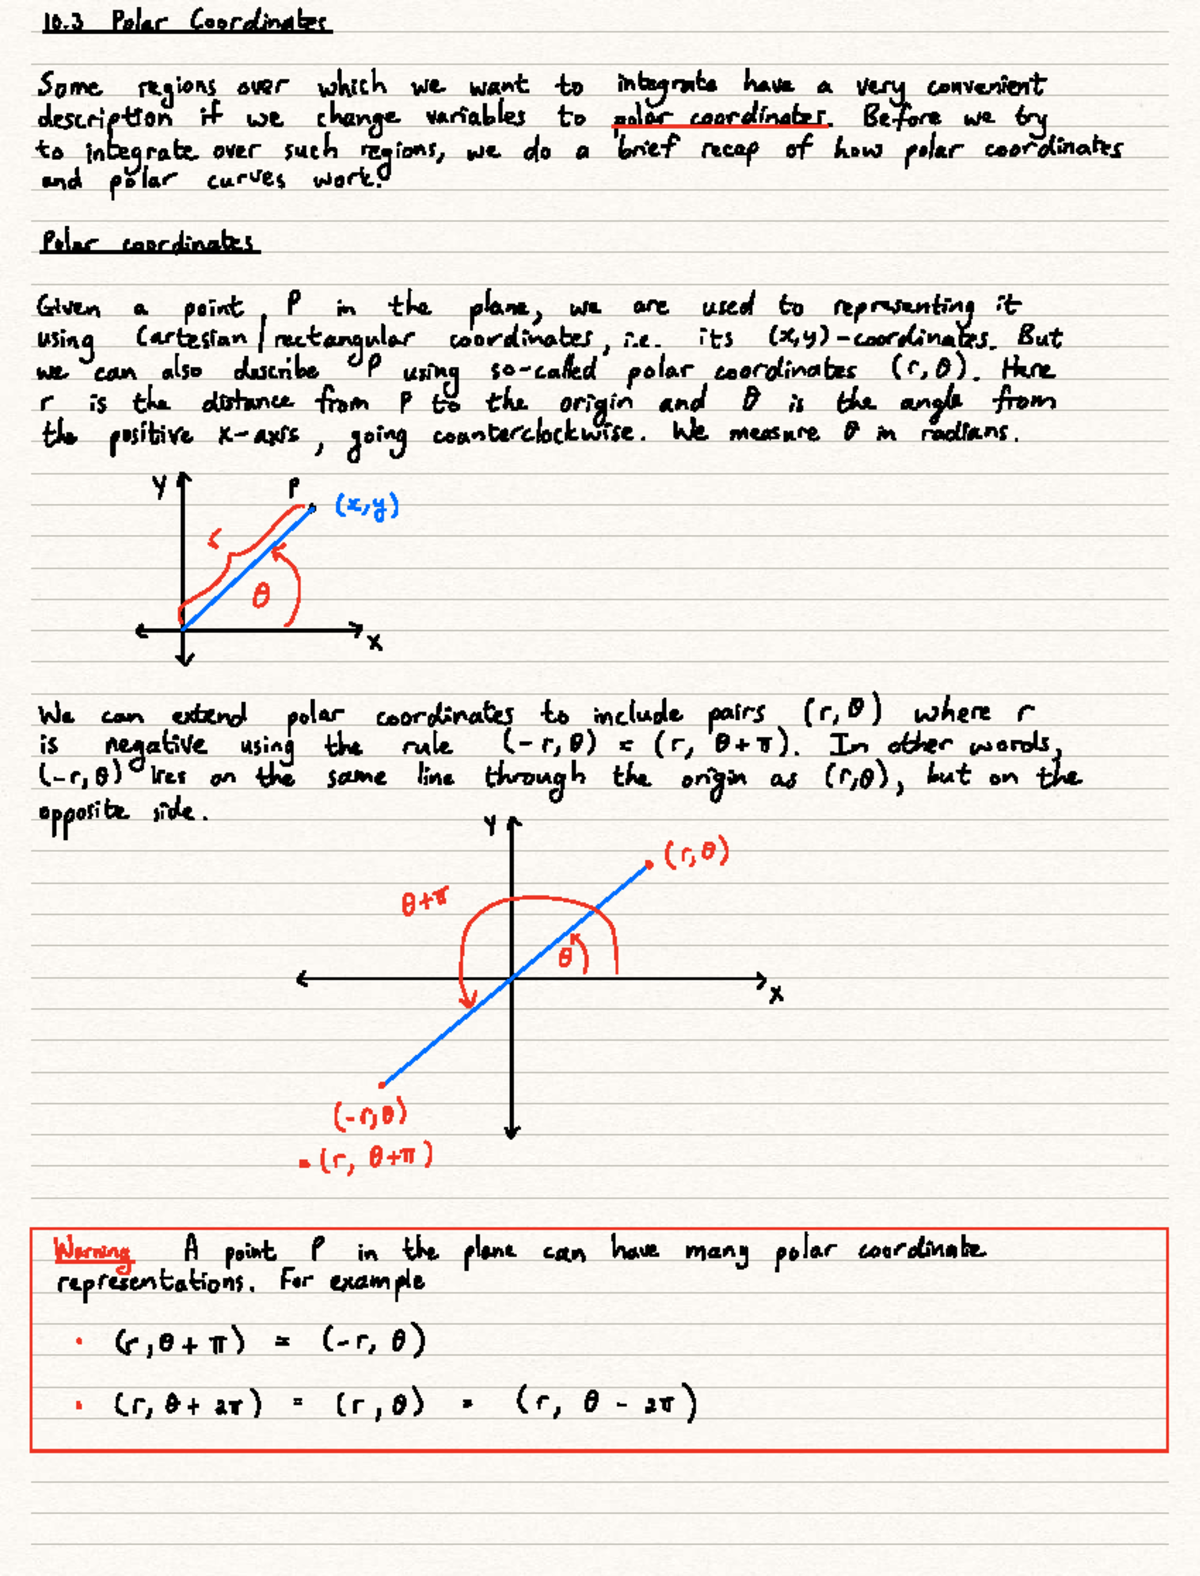 10.3 Polar Coordinates
Some regions over which we want to integrate have a very convenient
description if we change variables to polar coordinates. Before we try
to integrate over such regions, we do a brief recap of how polar coordinates
and polar curves work.
Polar coordinates
Given a point P in the plane, we are used to representing it
using Cartesian/rectangular coordinates, i.e. its (x,y)-coordinates. But
we can also describe P using so-called polar coordinates (r, θ). Here
r is the distance from P to the origin and θ is the angle from
the positive x-axis, going counterclockwise. We measure θ in radians.
y
P
(x,y)
r
θ
x
We can extend polar coordinates to include pairs (r, θ) where r
is negative using the rule (-r, θ) = (r, θ+π). In other words,
(-r, θ) lies on the same line through the origin as (r,θ), but on the
opposite side.
y
(r, θ)
θ+π
θ
x
(-r, θ)
= (r, θ+π)
Warning A point P in the plane can have many polar coordinate
representations. For example
• (r, θ + π) = (-r, θ)
• (r, θ + 2π) = (r, θ) = (r, θ - 2π)